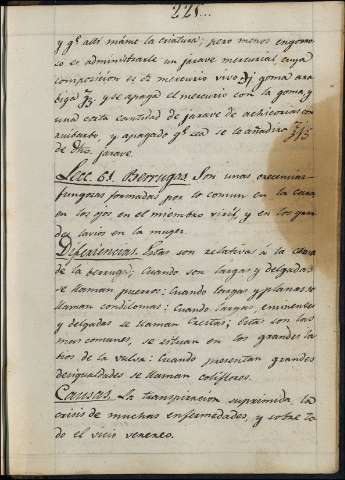 221...
y qe. alli máme la criatura; pero menos engorro-
so es administrarle un jarave mercurial cuya
composicion es de mercurio vivo ʒj goma ara-
biga ℥ß y se apaga el mercurio con la goma y
una corta cantidad de jarave de achicorias con
ruibarbo y apagado qe. sea se le añadiran
de dho. jarave.
Lecc. 61. Berrugas. Son unas excrecencias
fungosas formadas por lo comun en la cara
en los ojos en el miembro viril, y en los gran-
des lavios en la muger.
Diferiencias. Estas son relativas á la
de la berruga; Cuando son largas y delgadas
se llaman puerros: Cuando largas y planas se
llaman condilomas: Cuando largas, eminentes
y delgadas se llaman Crestas; Estas son las
mas comunes, se situan en los grandes la-
bios de la vulva: Cuando presentan grandes
desigualdades se llaman coliflores.
Causas. La transpiracion suprimida la
crisis de muchas enfermedades, y sobre to-
do el vicio venereo.